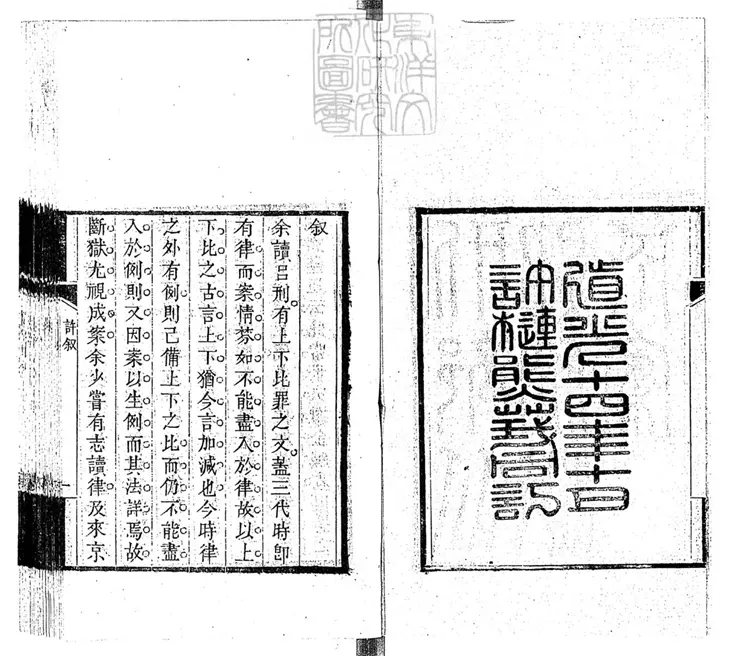 東洋文
化研究
所圖書
道光十四年十月
許槤熊莪
叙
余讀呂刑有上下比罪之文蓋三代時卽
有律而案情棼如不能盡入於律故以上
下比之古言上下猶今言加減也今時律
之外有例則已備上下之比而仍不能盡
入於例則又因案以生例而其法詳焉故
斷獄尤視成案余少嘗有志讀律及來京
許叙
一